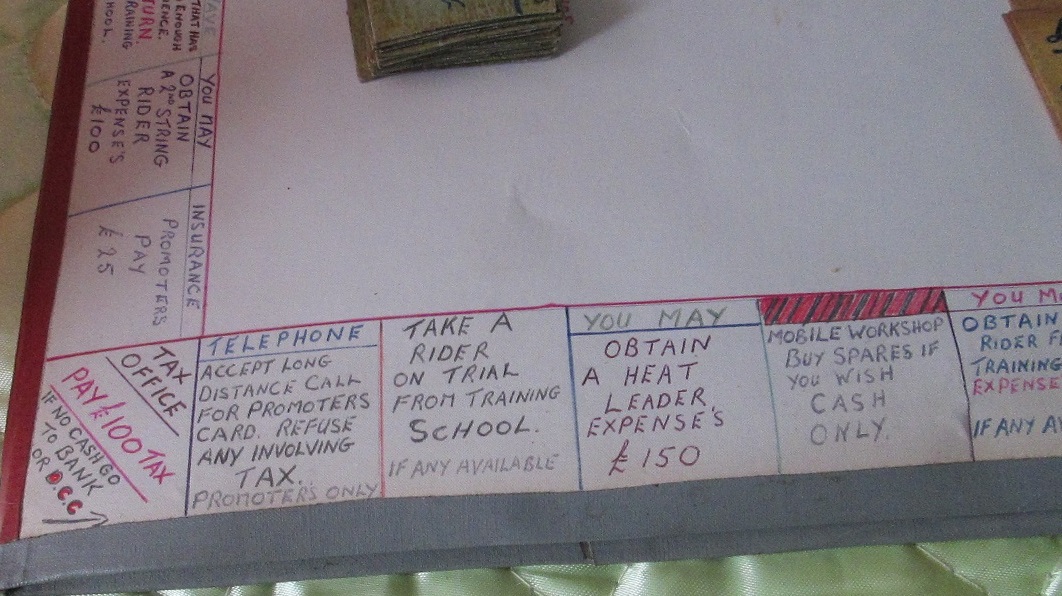 THAT HAS
ENOUGH
TURN
YOU MAY
OBTAIN
A 2ND STRING
RIDER
EXPENSE'S
£100
INSURANCE
PROMOTERS
PAY
£25
TAX
OFFICE
PAY £100 TAX
IF NO CASH GO
TO BANK
OR D.C.C
TELEPHONE
ACCEPT LONG
DISTANCE CALL
FOR PROMOTERS
CARD. REFUSE
ANY INVOLVING
TAX.
PROMOTERS ONLY
TAKE A
RIDER
ON TRIAL
FROM TRAINING
SCHOOL.
IF ANY AVAILABLE
YOU MAY
OBTAIN
A HEAT
LEADER.
EXPENSE'S
£150
MOBILE WORKSHOP
BUY SPARES IF
YOU WISH
CASH
ONLY.
YOU M
OBTAIN
RIDER F
TRAINING
EXPENSE
IF ANY AV